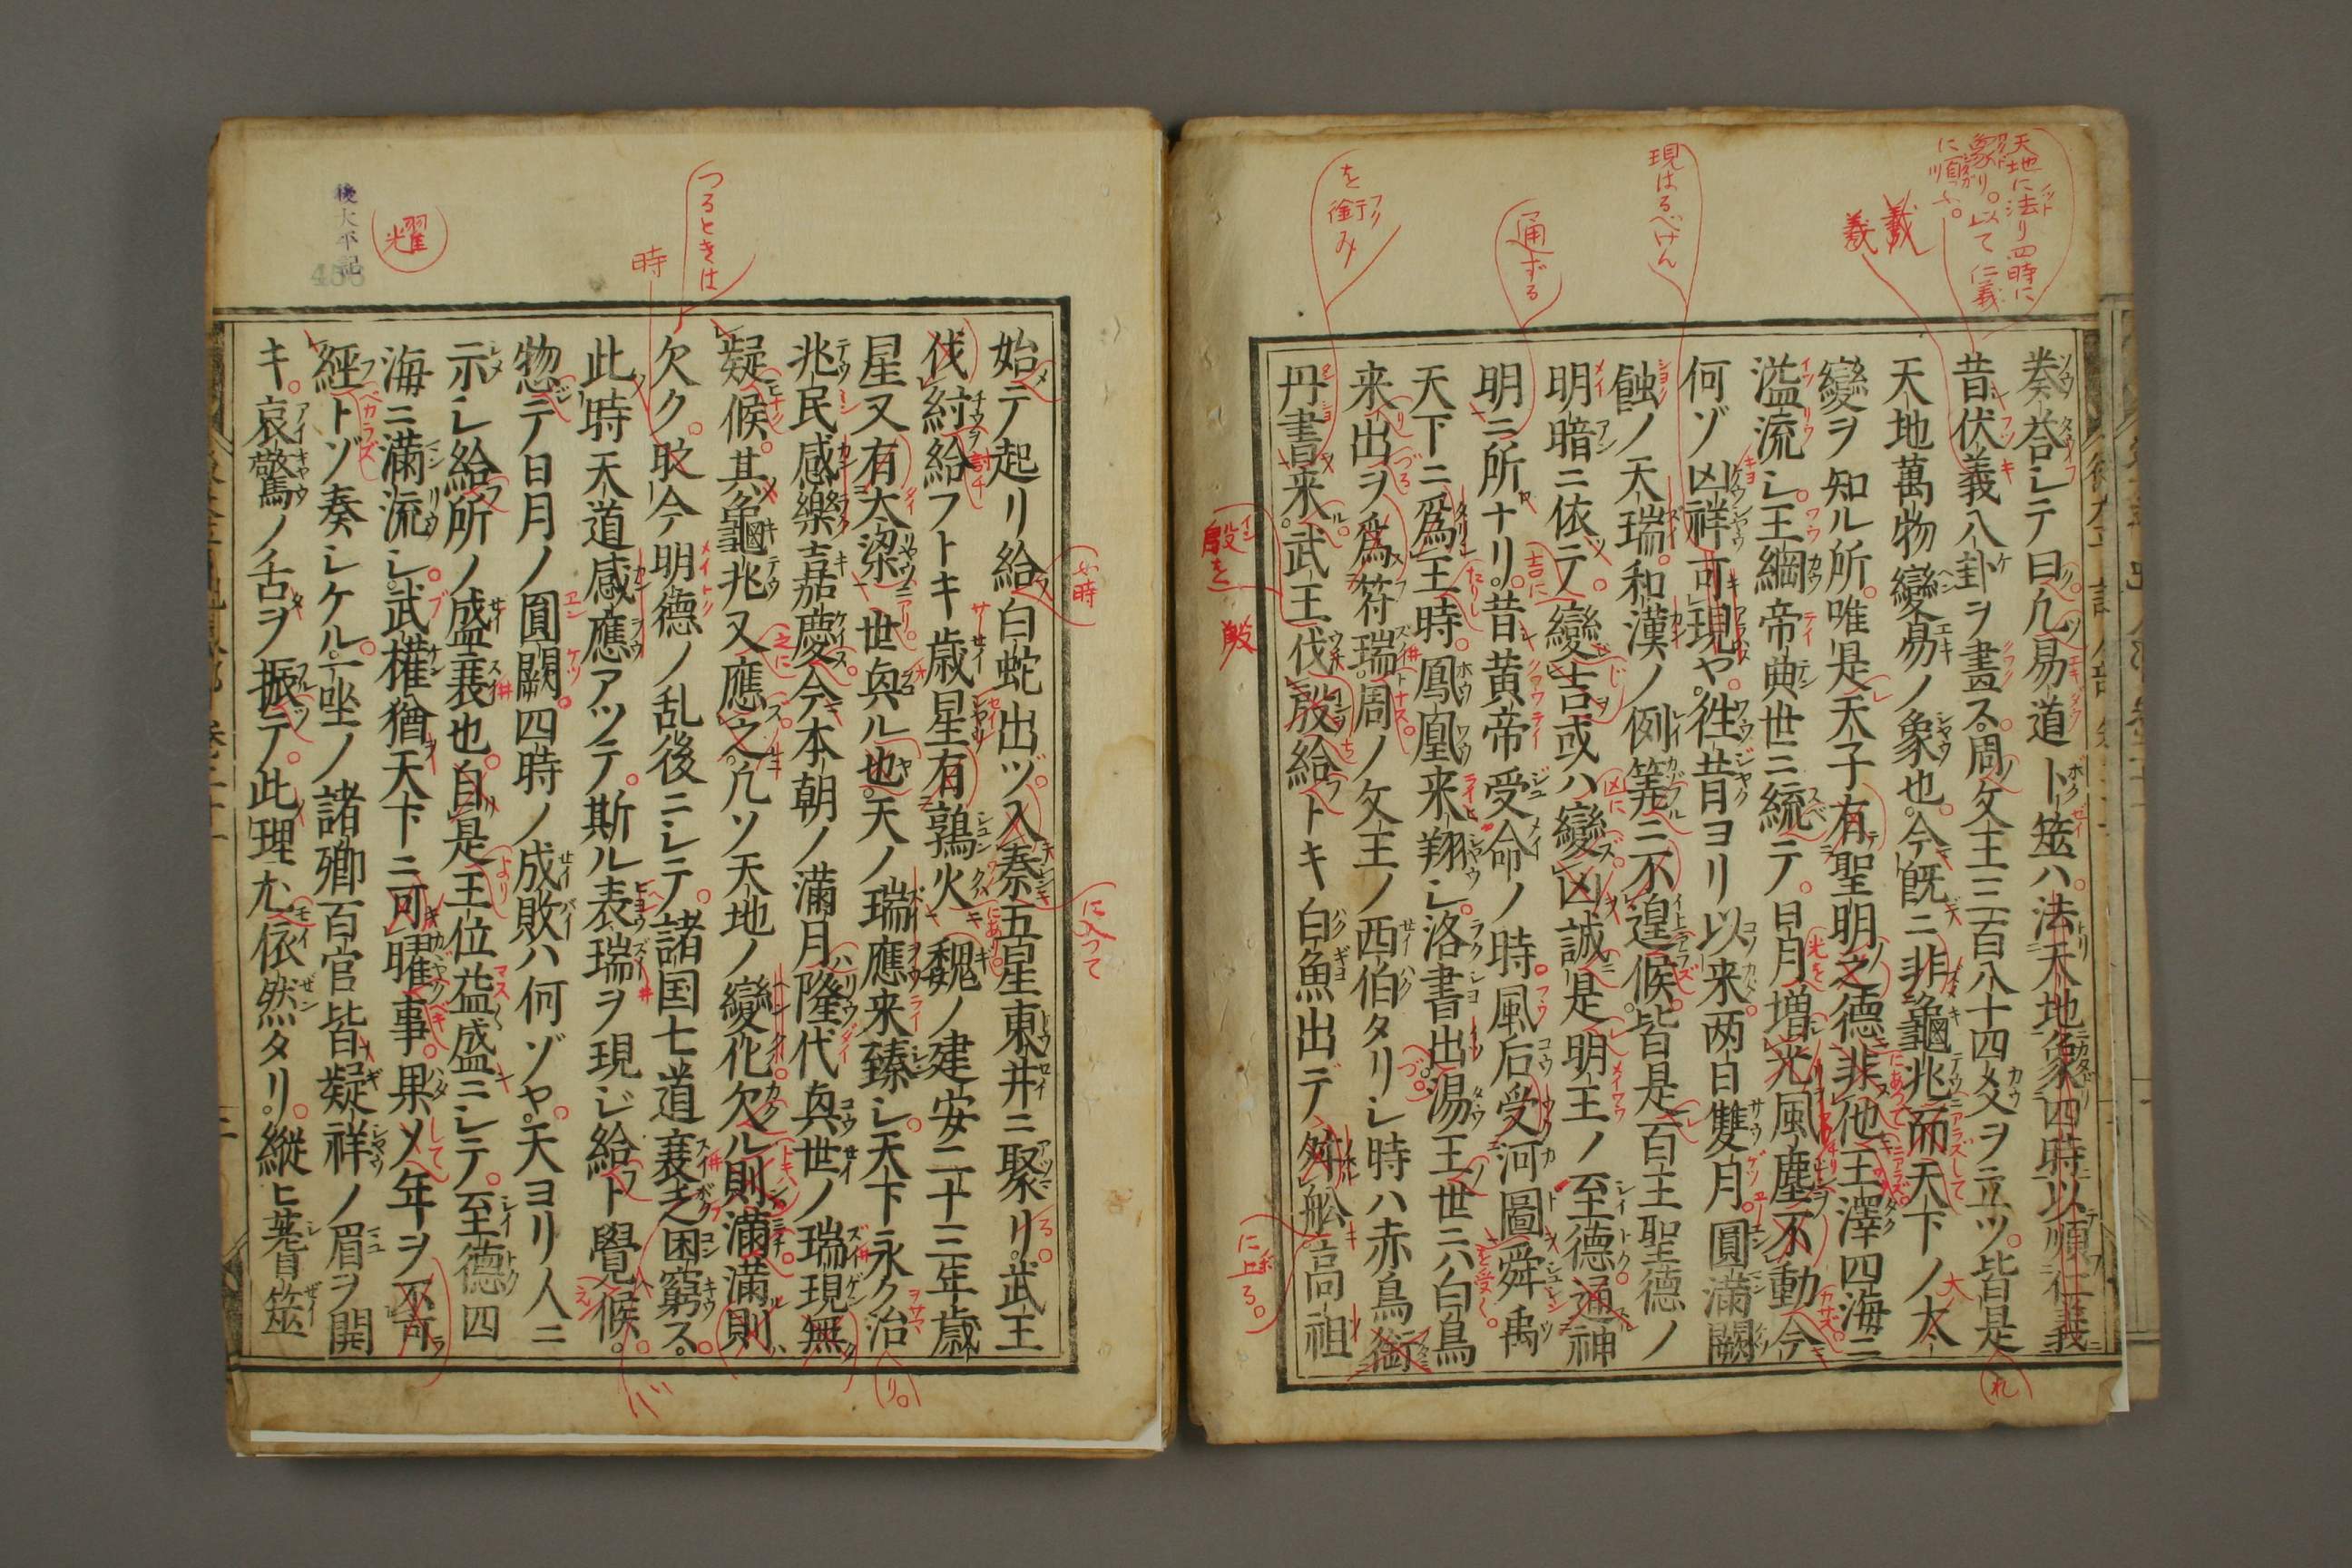 奏答シテ曰凡易道卜筮ハ法天地象四時以順仁義
昔伏義八卦ヲ畫ス周ノ文王三百八十四爻ヲ立ツ皆是
天地萬物變易ノ象也今既ニ非龜兆而天下ノ大
變ヲ知ル所唯是天子有聖明之德非他王澤四海ニ
溢流シ王綱帝典世ニ統テ日月増光風塵不動今
何ゾ凶祥可現ヤ徃昔ヨリ以来两日雙月圓滿闕
蝕ノ天瑞和漢ノ例筭ニ不遑候皆是百王聖德ノ
明暗ニ依テ變吉或ハ變凶誠是明王ノ至德通神
明ニ所ナリ昔黄帝受命ノ時風后受河圖舜禹
天下ニ爲王時鳳凰来翔シ洛書出湯王世ニハ白鳥
来出ヲ爲符瑞周ノ文王ノ西伯タリシ時ハ赤鳥銜
丹書来武王伐殷給トキ白魚出デ舩高祖
始テ起リ給白蛇出ヅ入秦五星東井ニ聚リ武王
伐紂給フトキ歳星有鶉火魏ノ建安二十三年歳
星又有大梁世與ル也天ノ瑞應来臻シ天下永ク治
兆民感樂嘉慶今本朝ノ滿月隆代與世ノ瑞現無
疑候其龜兆又應之凡ソ天地ノ變化欠ル則滿滿則
欠ク今明德ノ乱後ニシテ諸国七道衰乏困窮ス
此時天道感應アツテ斯ル表瑞ヲ現ジ給フト覺候
惣テ日月ノ圓闕四時ノ成敗ハ何ゾヤ天ヨリ人ニ
示シ給所ノ盛衰也自是王位益盛ニシテ至德四
海ニ滿流シ武權猶天下ニ可曜事果メ年ヲ不可
經トゾ奏シケル一坐ノ諸卿百官皆疑祥ノ眉ヲ開
キ哀驚ノ舌ヲ振テ此理尤依然タリ縱ヒ蓍筮
天地に法り四時に
象り。以て仁義
に順ふ。
義
現はるべけん
通ずる
を銜み
殷を
に上る。
つるときは
時
耀
ふ時
に入って
後太平記